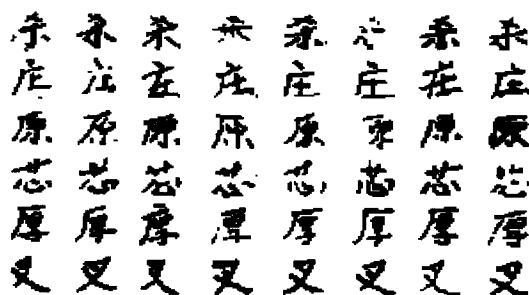 杀杀杀杀杀杀杀杀
庄庄庄庄庄庄庄庄
原原原原原原原原
芯芯芯芯芯芯芯芯
厚厚厚厚厚厚厚厚
叉叉叉叉叉叉叉叉